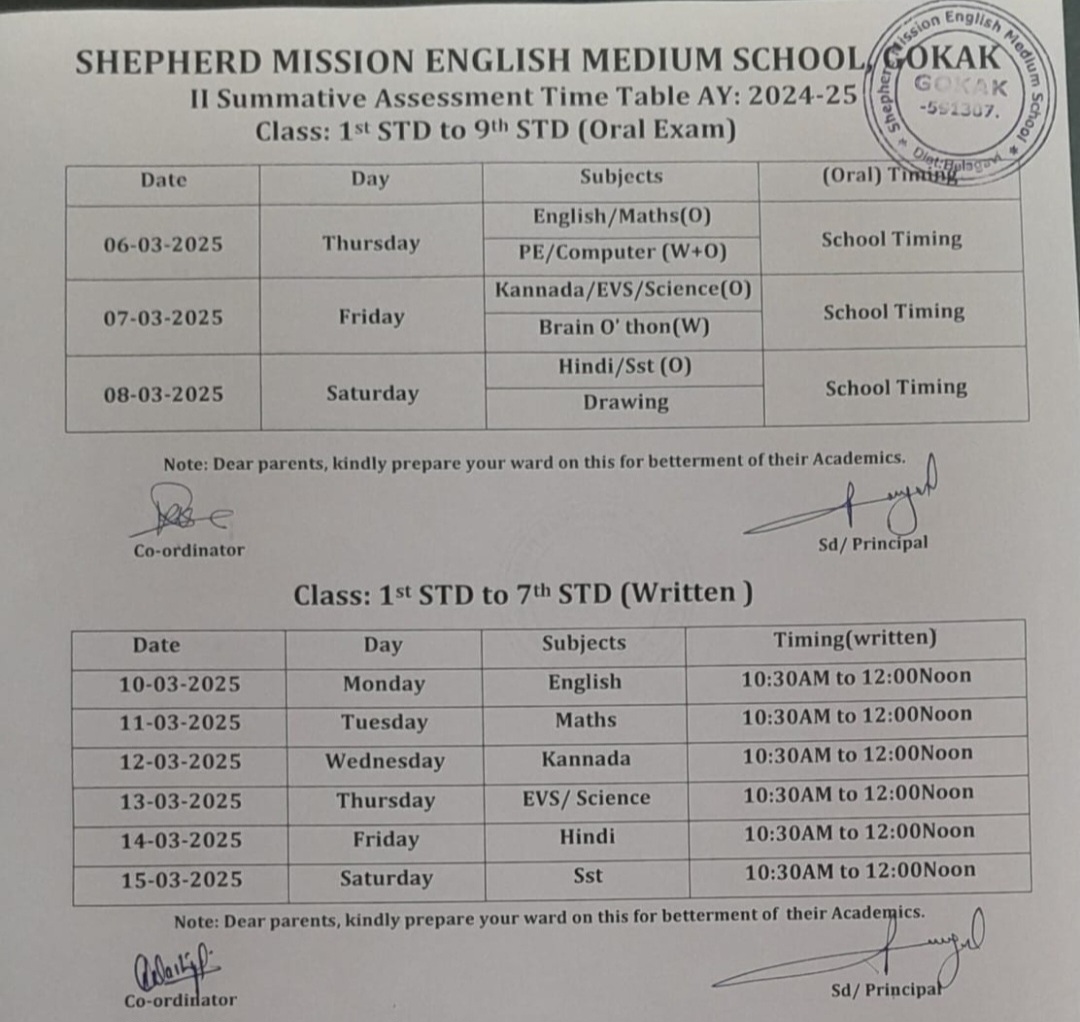 SHEPHERD MISSION ENGLISH MEDIUM SCHOOL, GOKAK
II Summative Assessment Time Table AY: 2024-25
Class: 1st STD to 9th STD (Oral Exam)
Shepherd Mission English Medium School
GOKAK
-591307.
Date Day Subjects (Oral) Timing
06-03-2025 Thursday English/Maths(O) School Timing
PE/Computer (W+O)
07-03-2025 Friday Kannada/EVS/Science(O) School Timing
Brain O' thon(W)
08-03-2025 Saturday Hindi/Sst (O) School Timing
Drawing
Note: Dear parents, kindly prepare your ward on this for betterment of their Academics.
Co-ordinator Sd/ Principal
Class: 1st STD to 7th STD (Written )
Date Day Subjects Timing(written)
10-03-2025 Monday English 10:30AM to 12:00Noon
11-03-2025 Tuesday Maths 10:30AM to 12:00Noon
12-03-2025 Wednesday Kannada 10:30AM to 12:00Noon
13-03-2025 Thursday EVS/ Science 10:30AM to 12:00Noon
14-03-2025 Friday Hindi 10:30AM to 12:00Noon
15-03-2025 Saturday Sst 10:30AM to 12:00Noon
Note: Dear parents, kindly prepare your ward on this for betterment of their Academics.
Co-ordinator Sd/ Principal